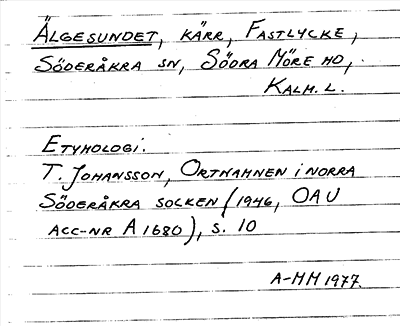 ÄLGESUNDET, KÄRR, FASTLYCKE,
SÖDERÅKRA SN, SÖDRA MÖRE HD,
KALM. L.
ETYMOLOGI.
T. JOHANSSON, ORTNAMNEN I NORRA
SÖDERÅKRA SOCKEN (1946, OAU
ACC-NR A 1680), S. 10
A-MM 1977